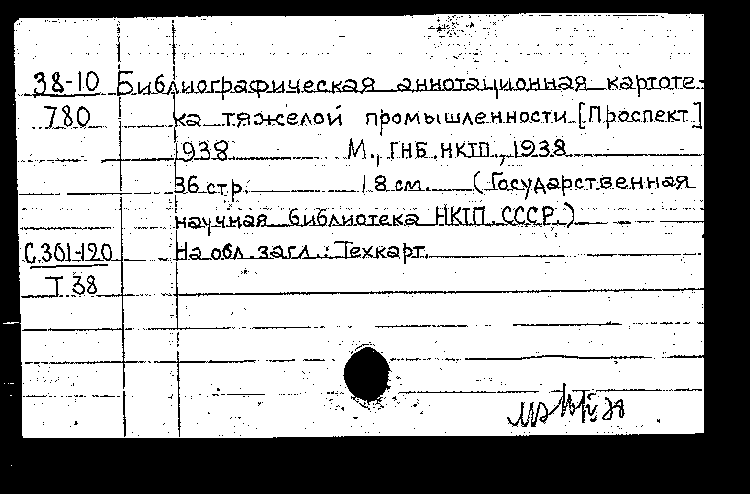 38-10 Библиографическая аннотационная картоте-
780 ка тяжелой промышленности. [Проспект]
1938 М., ГНБ НКТП, 1938
36 стр. 18 см. (Государственная
научная библиотека НКТП СССР.)
С.301-120 На обл. загл.: Техкарт.
Т 38